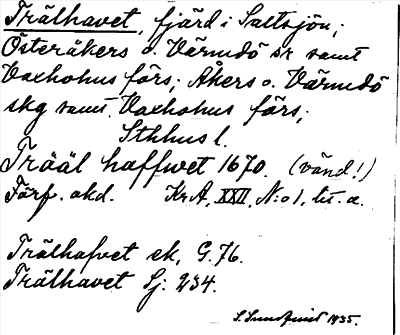 Trälhavet, fjärd i Saltsjön;
Österåkers o. Värmdö sr samt
Vaxholms förs; Åkers o. Värmdö
skg samt Vaxholms förs;
Sthlms l.
Trääl haffwet 1670. (vänd!)
Förf. okd. KrA, XXII, N:o 1, lit. a.
Trälhafvet ek, G. 76.
Trälhavet Sj: 234.
1935.